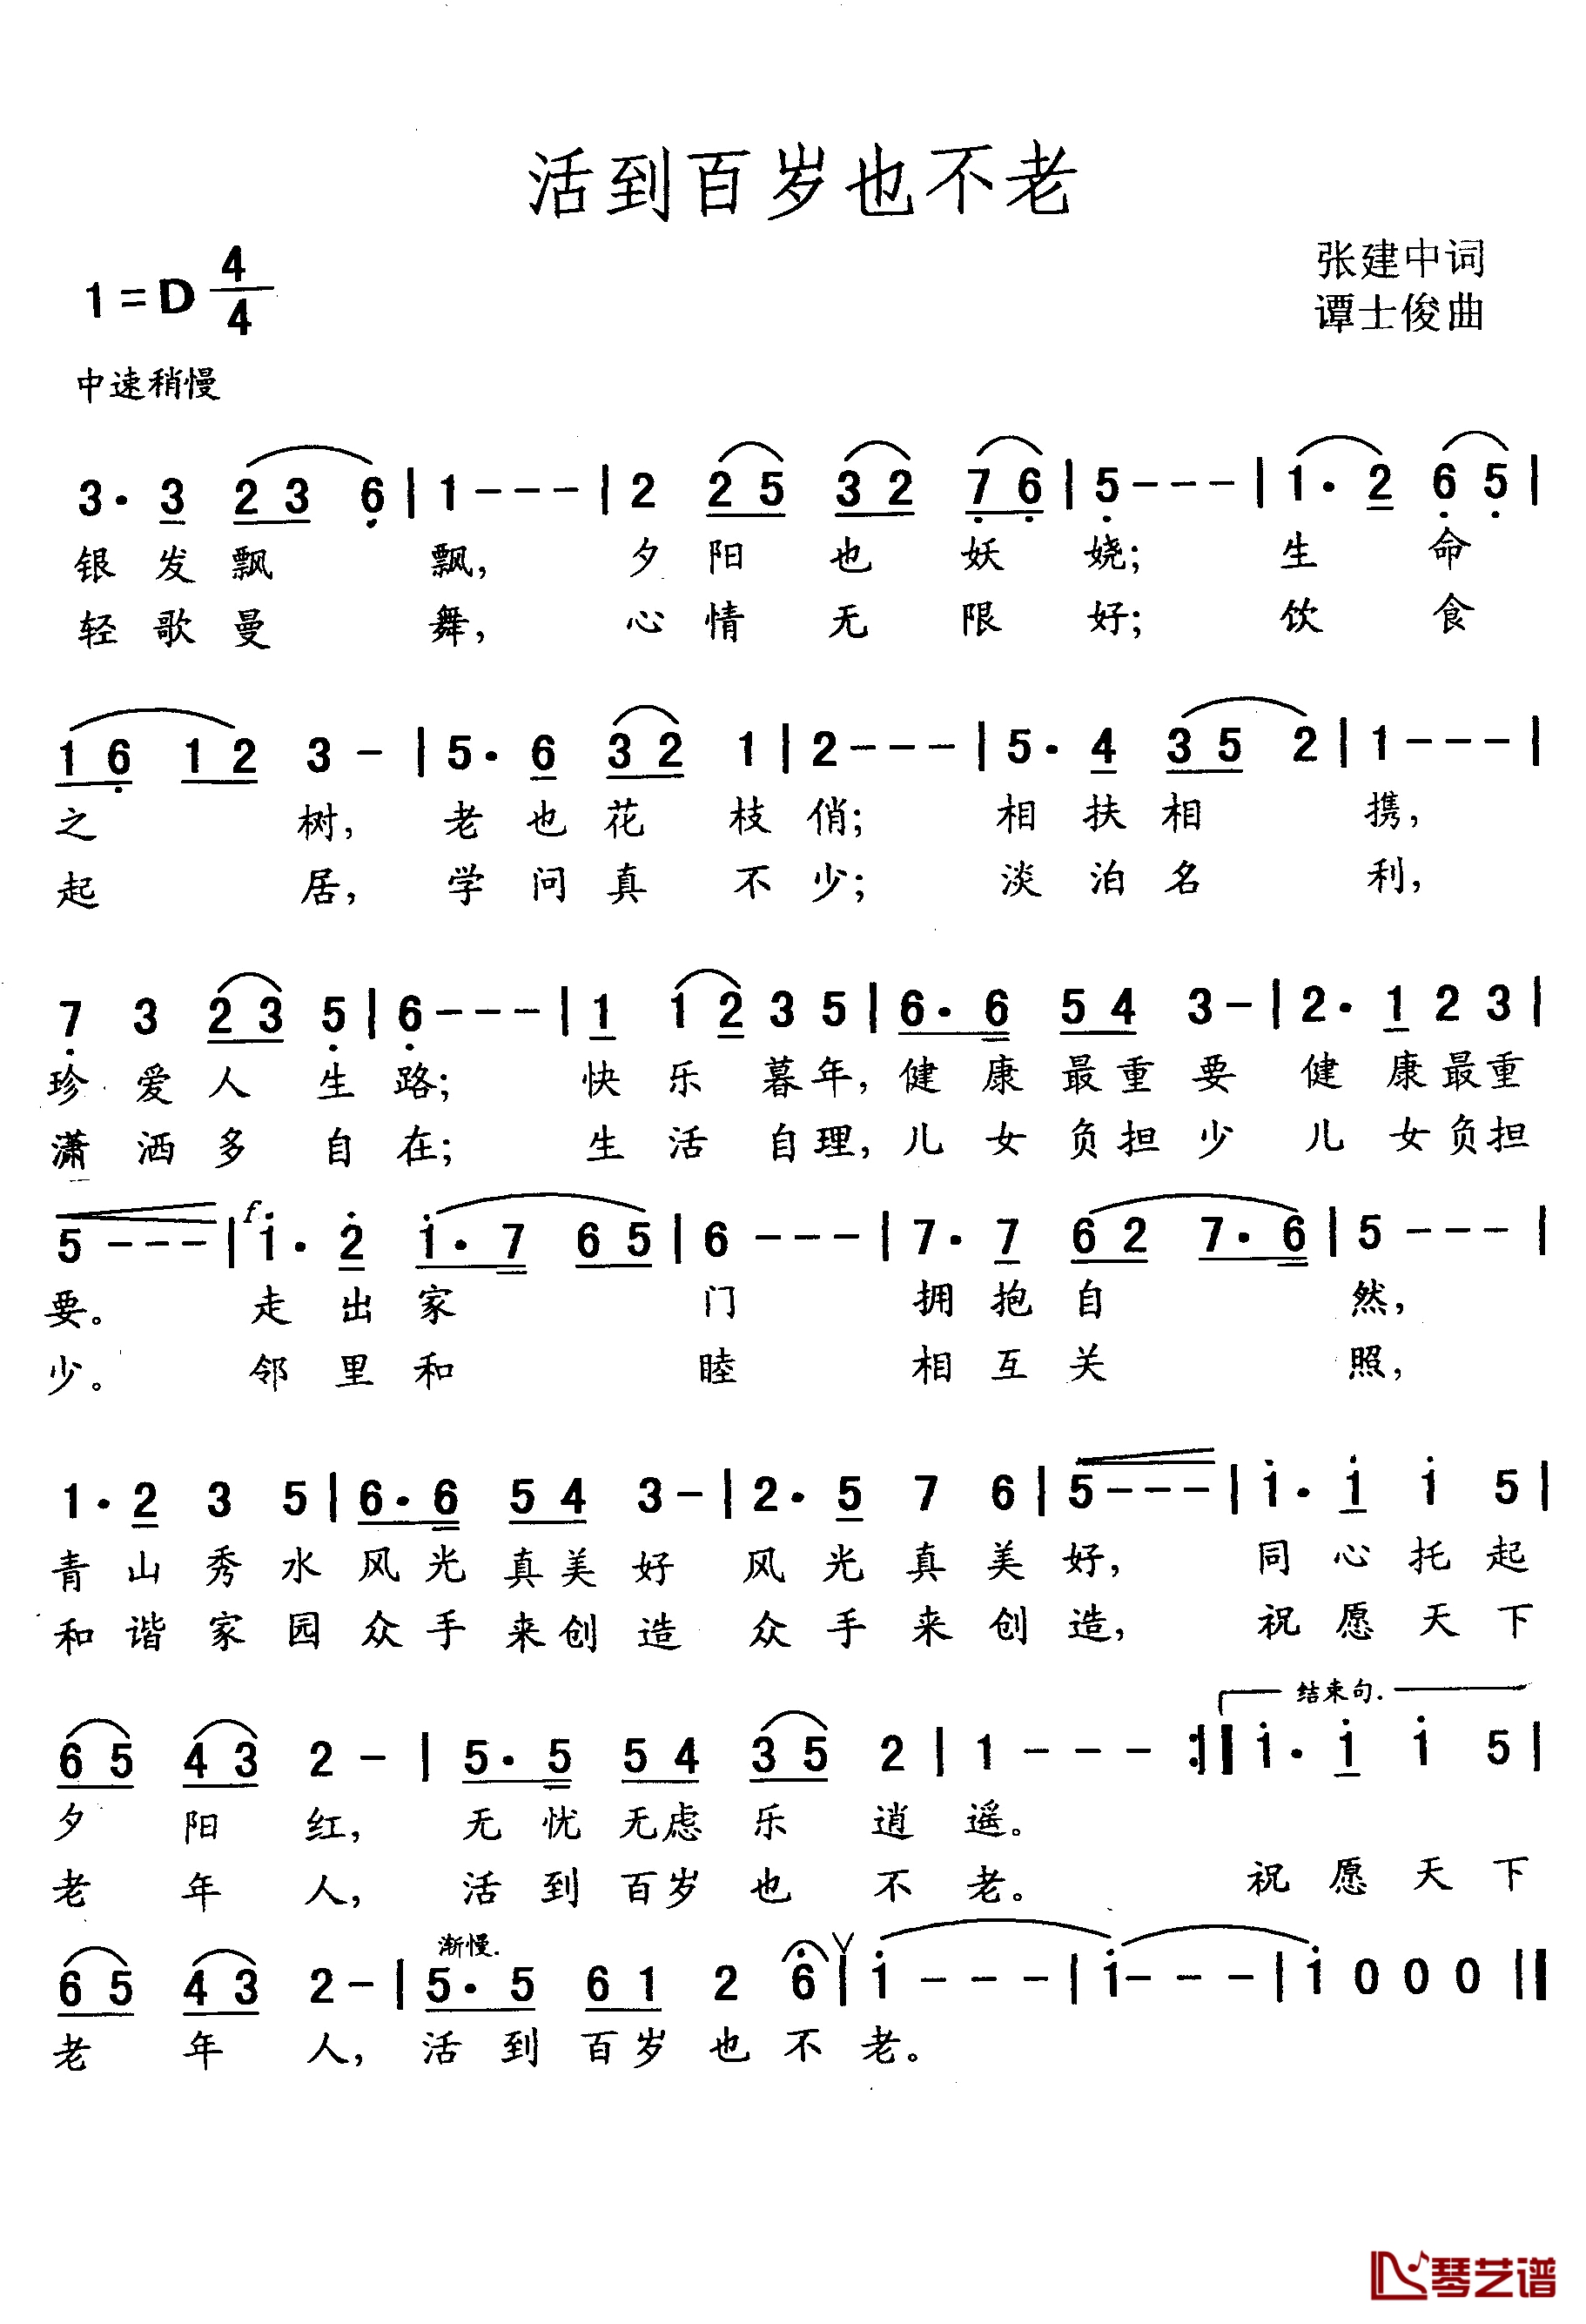 活到百岁也不老
张建中词
1=D 4/4
谭士俊曲
中速稍慢
3· 3 2 3 6 | 1 - - - | 2 2 5 3 2 7 6 | 5 - - - | 1· 2 6 5 |
银发飘飘，夕阳也妖娆；生命
轻歌曼舞，心情无限好；饮食
1 6 1 2 3 - | 5· 6 3 2 1 | 2 - - - | 5· 4 3 5 2 | 1 - - - |
之树，老也花枝俏；相扶相携，
起居，学问真不少；淡泊名利，
7 3 2 3 5 | 6 - - - | 1 1 2 3 5 | 6· 6 5 4 3 - | 2· 1 2 3 |
珍爱人生路；快乐暮年，健康最重要健康最重
潇洒多自在；生活自理，儿女负担少儿女负担
f
5 - - - | 1· 2 1· 7 6 5 | 6 - - - | 7· 7 6 2 7· 6 | 5 - - - |
要。走出家门拥抱自然，
少。邻里和睦相互关照，
1· 2 3 5 | 6· 6 5 4 3 - | 2· 5 7 6 | 5 - - - | 1· 1 1 5 |
青山秀水风光真美好风光真美好，同心托起
和谐家园众手来创造众手来创造，祝愿天下
结束句.
6 5 4 3 2 - | 5· 5 5 4 3 5 2 | 1 - - - :| 1· 1 1 5 |
夕阳红，无忧无虑乐逍遥。
老年人，活到百岁也不老。祝愿天下
渐慢.
6 5 4 3 2 - | 5· 5 6 1 2 6 | 1 - - - | 1 - - - | 1 0 0 0 ||
老年人，活到百岁也不老。
琴艺谱